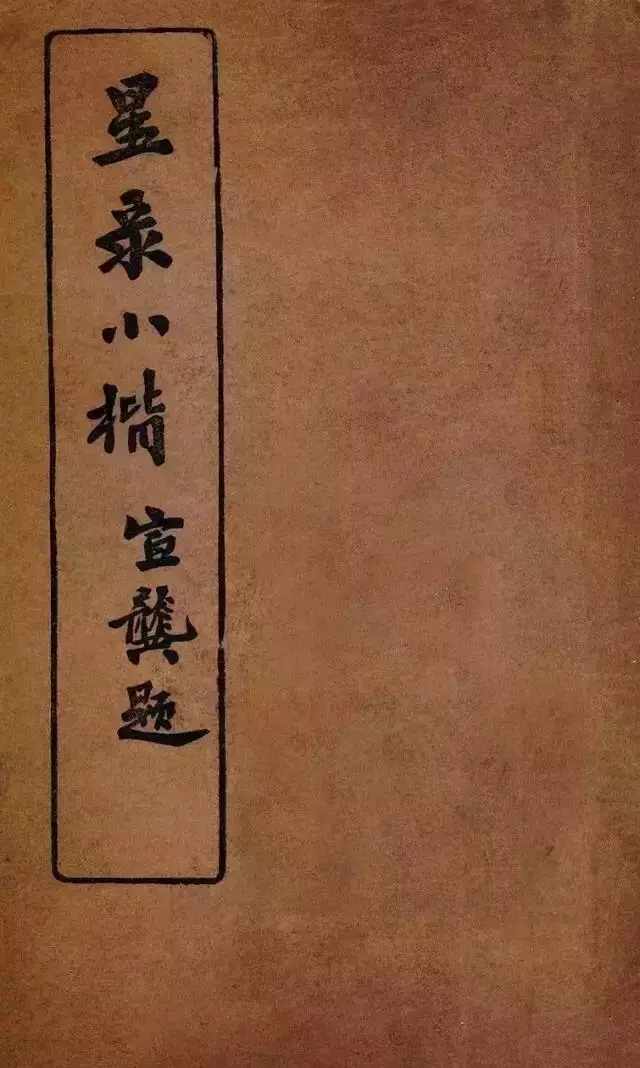 星录小楷
宣龔题